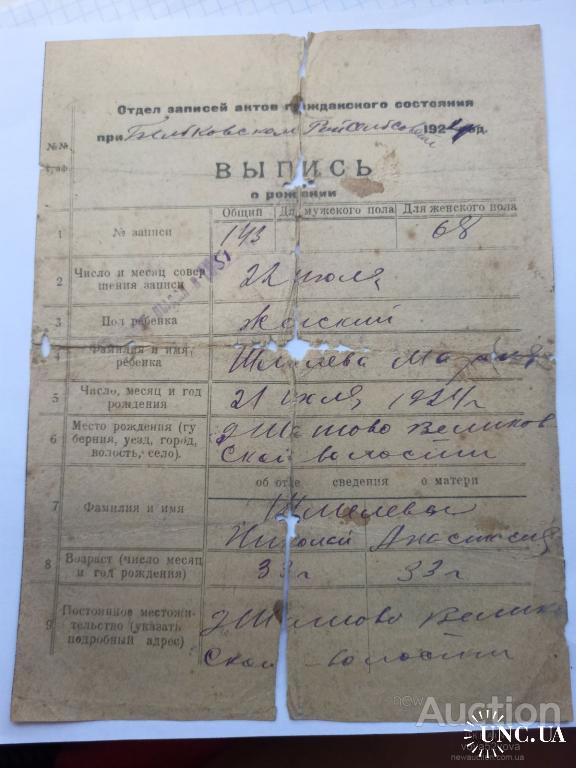 Отдел записей актов гражданского состояния
при 1924 год.
№№
ВЫПИСЬ
о рождении
Общий Для мужского пола Для женского пола
1 № записи 143 68
2 Число и месяц совер
шения записи 22 июля
3 Пол ребенка Женский
4 Фамилия и имя
ребенка Шмелева
5 Число, месяц и год
рождения 21 июля 1924 г
6 Место рождения (гу
берния, уезд, город,
волость, село). Великов
ской волости
об отце сведения о матери
7 Фамилия и имя Шмелевы
Николай Анастасия
8 Возраст (число месяц
и год рождения) 33 г 33 г
9 Постоянное местожи-
тельство (указать
подробный адрес) Велико
ской волости
newAuction
UNC.UA
newauction.com.ua